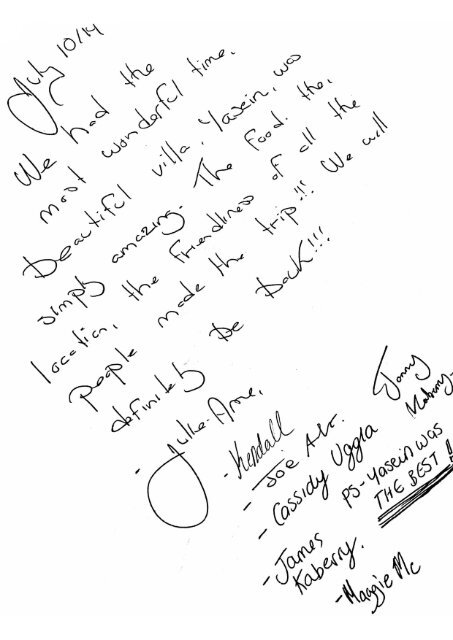 July 10/14
We had the
most wonderful time.
Beautiful villa, Yasein, was
simply amazing. The food. the,
location, the friendliness of all the
people made the trip!!! We will
definitely be back!!!
- Julie-Anne.
- Kendall
- Joe
- Cassidy Uggla
- James
Kaberry.
- Maggie Mc
Jonny
PS - Yasein was
THE BEST!